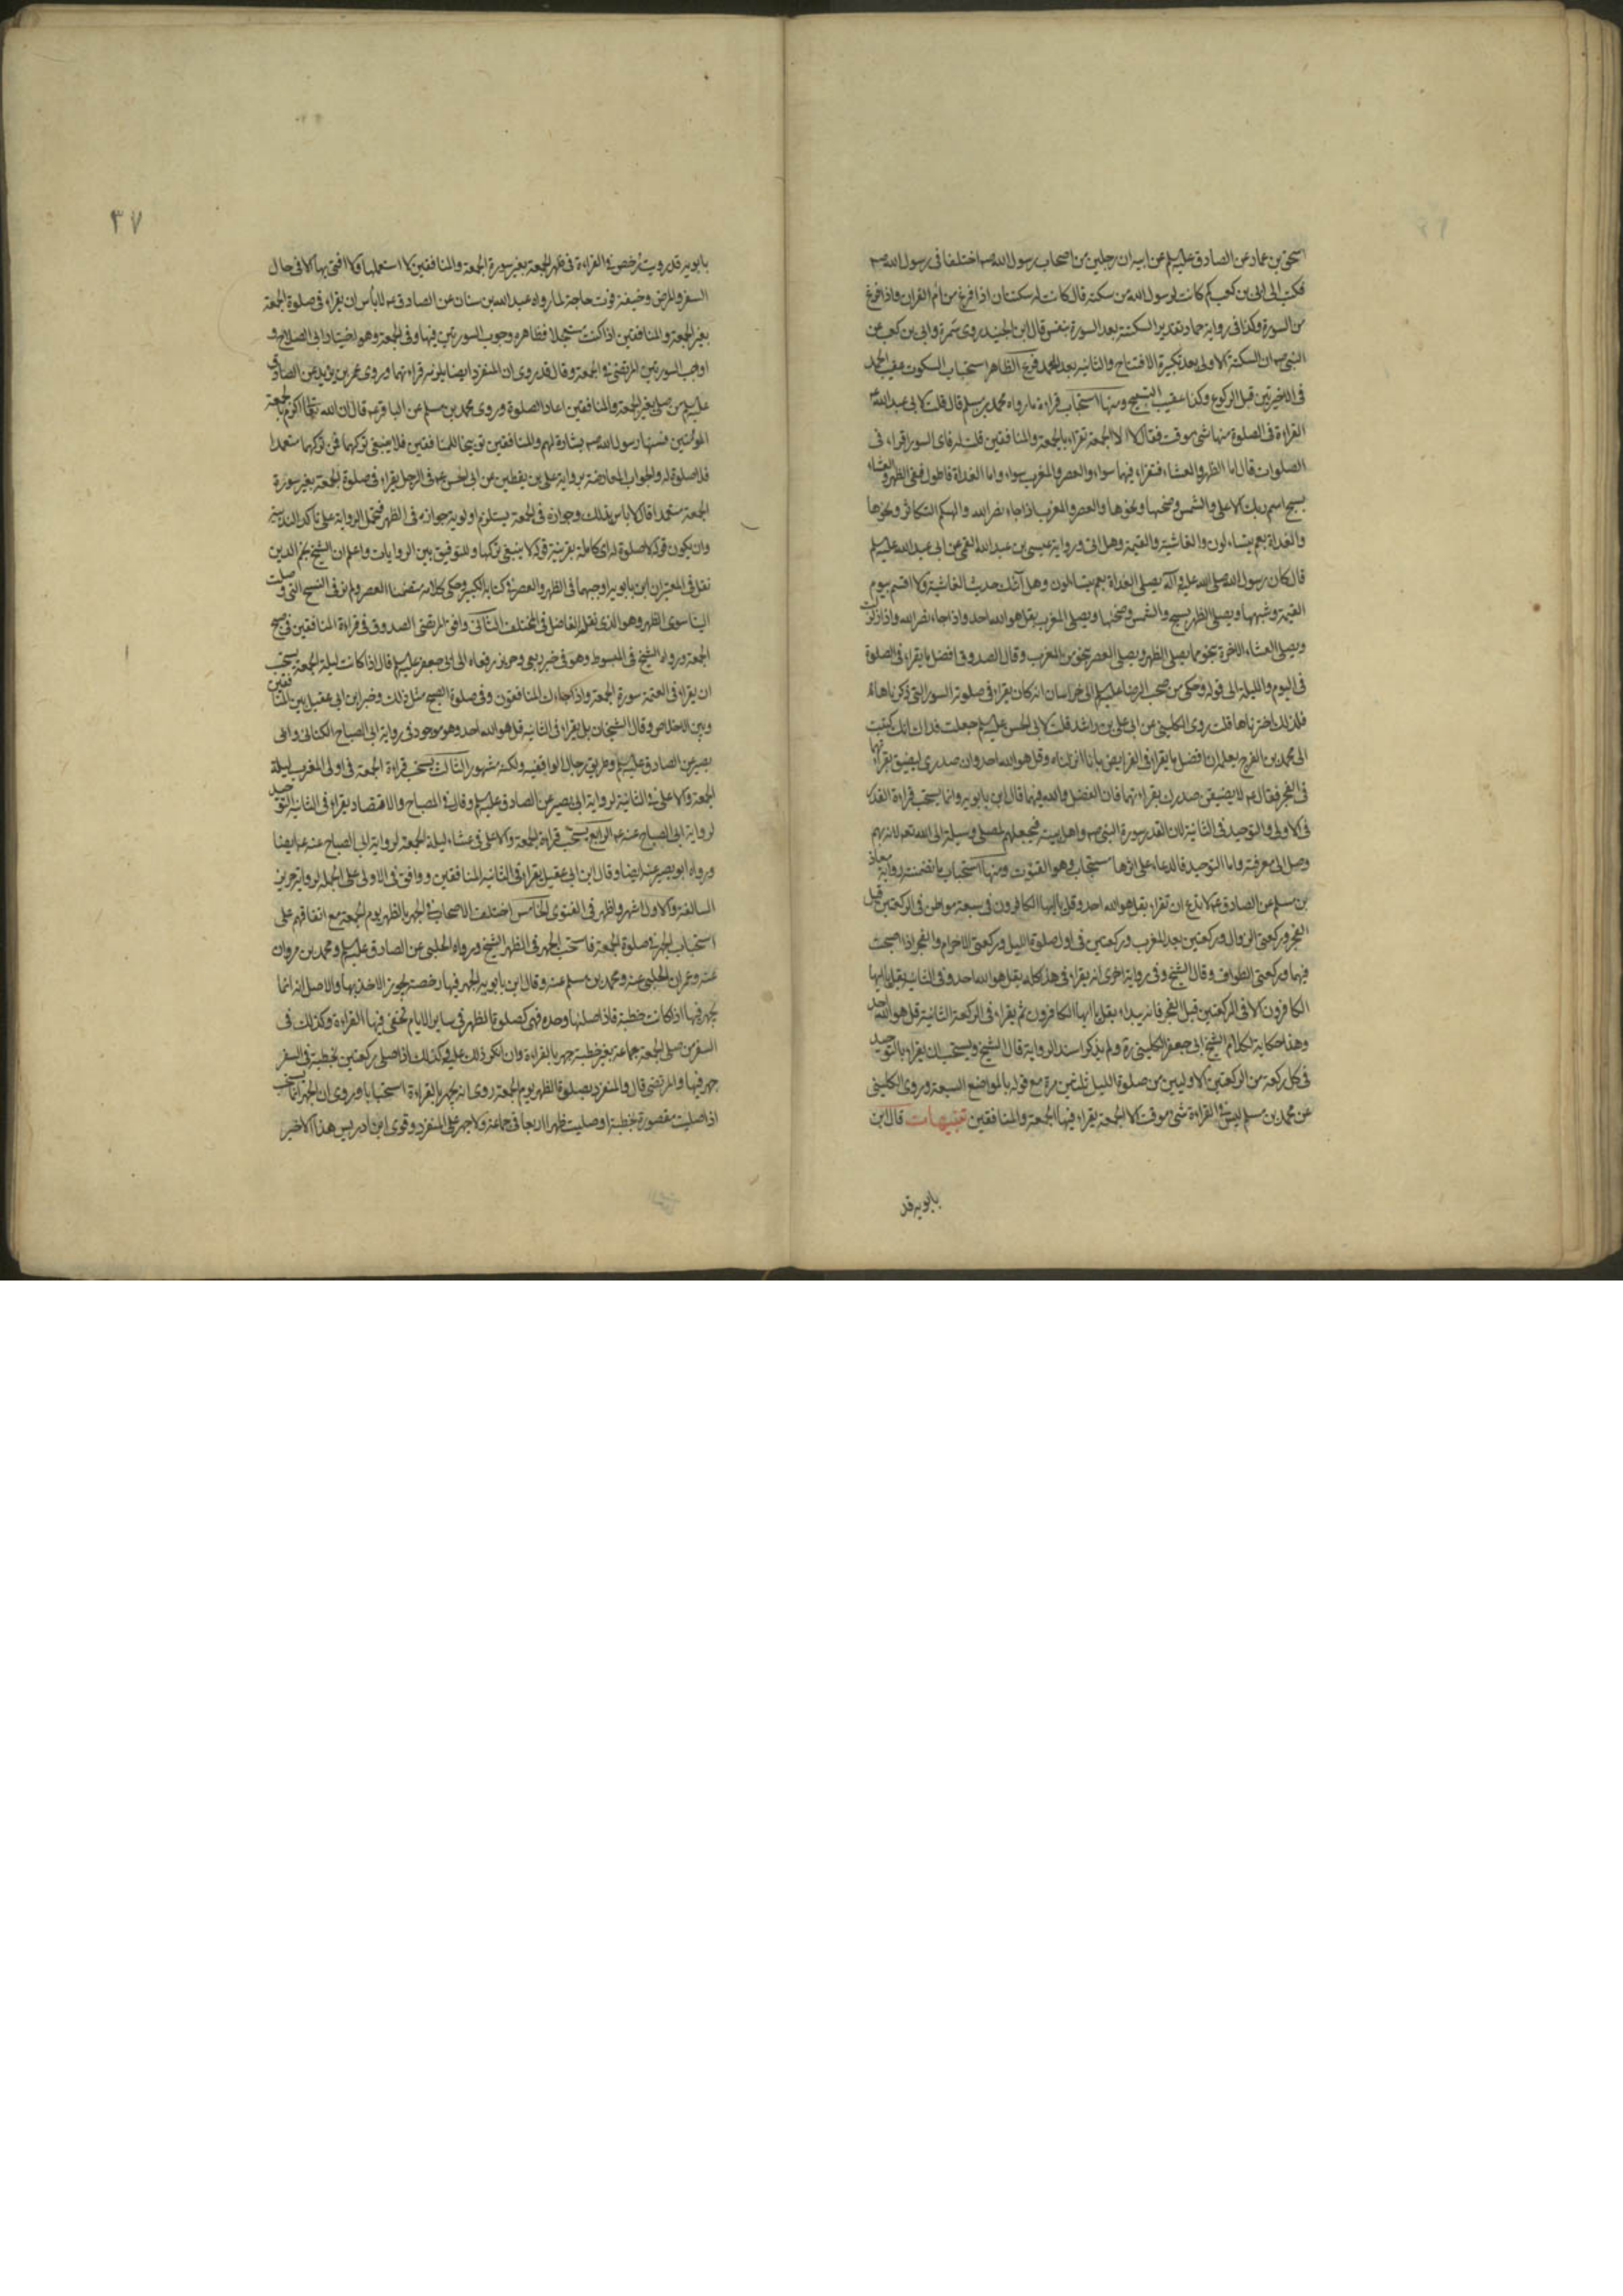 اسحق بن عمار عن الصادق عليه السلم عن ابيه ان رجلين من اصحاب رسول الله صم اختلفا فى رسول الله صم
فكتب الى ابى بن كعب كم كانت لرسول الله من سكتة قال كانت له سكتتان اذا فرغ من ام القران واذا فرغ
من السورة وكذا فى رواية حماد تقدير السكتة بعد السورة بنفس قال ابن الجنيد روى سمرة وابى بن كعب عن
النبى صم ان السكتة الاولى بعد تكبيرة الافتتاح والثانية بعد الحمد فرع الظاهر استحباب السكوت عقيب الحمد
فى الاخيرتين قبل الركوع وكذا عقيب التسبيح ومنها استحباب قراءة ما رواه محمد بن مسلم قال قلت لابى عبد الله ع
القراءة فى الصلوة منها شئ موقت فقال لا الا الجمعة تقراء بالجمعة والمنافقين قلت له فاى السور اقراء فى
الصلوات قال اما الظهر والعشاء فتقراء فيهما سواء والعصر والمغرب سواء واما الغداة فاطول ففى الظهر والعشاء
بسبح اسم ربك الاعلى والشمس وضحيها ونحوها والعصر والمغرب اذا جاء نصر الله والهيكم التكاثر ونحوها
والغداة بعم يتساءلون والغاشية والقيمة وهل اتى وروايه عيسى بن عبد الله القمى عن ابى عبد الله عليه السلم
قال كان رسول الله صلى الله عليه وآله يصلى الغداة بعم يتساءلون وهل اتيك حديث الغاشية ولا اقسم بيوم
القيمة وشبهها ويصلى الظهر بسبح والشمس وضحيها ويصلى المغرب بقل هو الله احد واذا جاء نصر الله واذا زلزلت
ويصلى العشاء الاخرة بنحو ما يصلى الظهر ويصلى العصر بنحو من المغرب وقال الصدوق افضل ما يقراء فى الصلوة
فى اليوم والليلة الى قوله وحكى من صحب الرضا عليه السلم الى خراسان انه كان يقراء فى صلوته السور التى ذكرناها
فلذلك اخترناها قلت روى الكلينى عن ابى على بن راشد قلت لابى الحسن عليه السلم جعلت فداك انك كتبت
الى محمد بن الفرج يعلمه ان افضل ما يقراء فى الفرايض بانا انزلناه وقل هو الله احد وان صدرى ليضيق بقراءتهما
فى الفجر فقال ع لا يضيقن صدرك بقراءتهما فان الفضل والله فيهما قال ابن بابويه وانما يستحب قراءة القدر
فى الاولى والتوحيد فى الثانية لان القدر سورة النبى صم واهل بيته فيجعلهم المصلى وسيلة الى الله تعالى لانه بهم
وصل الى معرفته واما التوحيد فالدعاء على اثرها مستجاب وهو القنوت ومنها استحباب ما تضمنته رواية معاذ
بن مسلم عن الصادق ع لا تدع ان تقراء بقل هو الله احد وقل يا ايها الكافرون فى سبعة مواطن فى الركعتين قبل
الفجر وركعتى الزوال وركعتين بعد المغرب وركعتين فى اول صلوة الليل وركعتى الاحرام والفجر اذا اصبحت
فيها وركعتى الطواف وقال الشيخ وفى رواية اخرى انه يقراء فى هذا كله بقل هو الله احد وفى الثانية بقل يا ايها
الكافرون الا فى الركعتين قبل الفجر فانه يبداء بقل يا ايها الكافرون ثم يقراء فى الركعة الثانية قل هو الله احد
وهذا حكاية لكلام الشيخ ابى جعفر الكلينى ره ولم يذكر اسند الرواية قال الشيخ ويستحب ان يقراء بالتوحيد
فى كل ركعة من الركعتين الاوليين من صلوة الليل ثلثين مرة مع قوله بالمواضع السبعة وروى الكلينى
عن محمد بن مسلم ليس فى القراءة شئ موقت الا الجمعة يقراء فيها الجمعة والمنافقين تنبيهات قال ابن
بابويه قد
٣٧
بابويه قد رويت رخصة فى القراءة فى ظهر الجمعة بغير سورة الجمعة والمنافقين لا استعملها ولا افتى بها الا فى حال
السفر والمرض وخيفة فوت حاجة لما رواه عبد الله بن سنان عن الصادق ع لا باس ان يقراء فى صلوة الجمعة
بغير الجمعة والمنافقين اذا كنت مستعجلا فظاهره وجوب السورتين فيها وفى الجمعة وهو اختيار ابى الصلاح و
اوجب السورتين المرتضى فى الجمعة وقال قد روى ان المنفرد ايضا يلزمه قراءتهما وروى عمر بن يزيد عن الصادق
عليه السلم من صلى بغير الجمعة والمنافقين اعاد الصلوة وروى محمد بن مسلم عن الباقر ع قال ان الله تعالى اكرم بالجمعة
المؤمنين فسنها رسول الله صم بشارة لهم والمنافقين توبيخا للمنافقين فلا ينبغى تركهما فمن تركهما متعمدا
فلا صلوة له والجواب المعارضة برواية على بن يقطين عن ابى الحسن ع فى الرجل يقراء فى صلوة الجمعة بغير سورة
الجمعة متعمدا قال لا باس بذلك وجوازه فى الجمعة يستلزم اولوية جوازه فى الظهر فتحمل الرواية على تاكد الندبية
وان يكون قوله لا صلوة له اى كاملة بقرينة قوله لا ينبغى تركها وللتوفيق بين الروايات واعلم ان الشيخ نجم الدين
نقل فى المعتبر ان ابن بابويه اوجبهما فى الظهر والعصر فى كتابه الكبير وحكى كلامه متضمنا العصر ولم نر فى النسخ التى وصلت
الينا سوى الظهر وهو الذى نقله الفاضل فى المختلف الثانى وافق المرتضى الصدوق فى قراءة المنافقين فى صبح
الجمعة ورواه الشيخ فى المبسوط وهو فى خبر ربعى وحريز رفعاه الى ابى جعفر عليه السلم قال اذا كانت ليلة الجمعة يستحب
ان يقراء فى العتمة سورة الجمعة واذا جاءك المنافقون وفى صلوة الصبح مثل ذلك وخير ابن ابى عقيل بين المنافقين
وبين الاخلاص وقال الشيخان بل يقراء فى الثانية قل هو الله احد وهو موجود فى رواية ابى الصباح الكنانى وابى
بصير عن الصادق عليه السلم وطريق رجال الواقفية ولكنه مشهور الثالث يستحب قراءة الجمعة فى اولى المغرب ليلة
الجمعة والاعلى فى الثانية لرواية ابى بصير عن الصادق عليه السلم وقال فى المصباح والاقتصاد يقراء فى الثانية التوحيد
لرواية ابى الصباح عنه ع الرابع يستحب قراءة الجمعة والاعلى فى عشاء ليلة الجمعة لرواية ابى الصباح عنه ع ايضا
ورواه ابو بصير عنه ايضا وقال ابن ابى عقيل يقراء فى الثانية المنافقين ووافق فى الاولى على الجملة لرواية حريز
السالفة والاول اشهر واظهر فى الفتوى الخامس اختلف الاصحاب فى الجهر بالظهر يوم الجمعة مع اتفاقهم على
استحباب الجهر فى صلوة الجمعة فاستحب الجهر فى الظهر الشيخ ورواه الحلبى عن الصادق عليه السلم ومحمد بن مروان
عنه وعمران الحلبى عنه ومحمد بن مسلم عنه وقال ابن بابويه الجهر فيها رخصة يجوز الاخذ بها والاصل انه انما
يجهر فيها اذا كانت خطبة فاذا صلاها وحده فهى كصلوة الظهر فى ساير الايام تخفى فيها القراءة وكذلك فى
السفر من صلى الجمعة جماعة بغير خطبة جهر بالقراءة وان انكر ذلك عليه وكذلك اذا صلى ركعتين بخطبة فى السفر
جهر فيها والمرتضى قال والمنفرد بصلوة الظهر يوم الجمعة روى انه يجهر بالقراءة استحبابا وروى ان الجهر انما يستحب
اذا صليت مقصورة بخطبة او صليت ظهرا اربعا فى جماعة ولا جهر على المنفرد وقوى ابن ادريس هذا الاخير